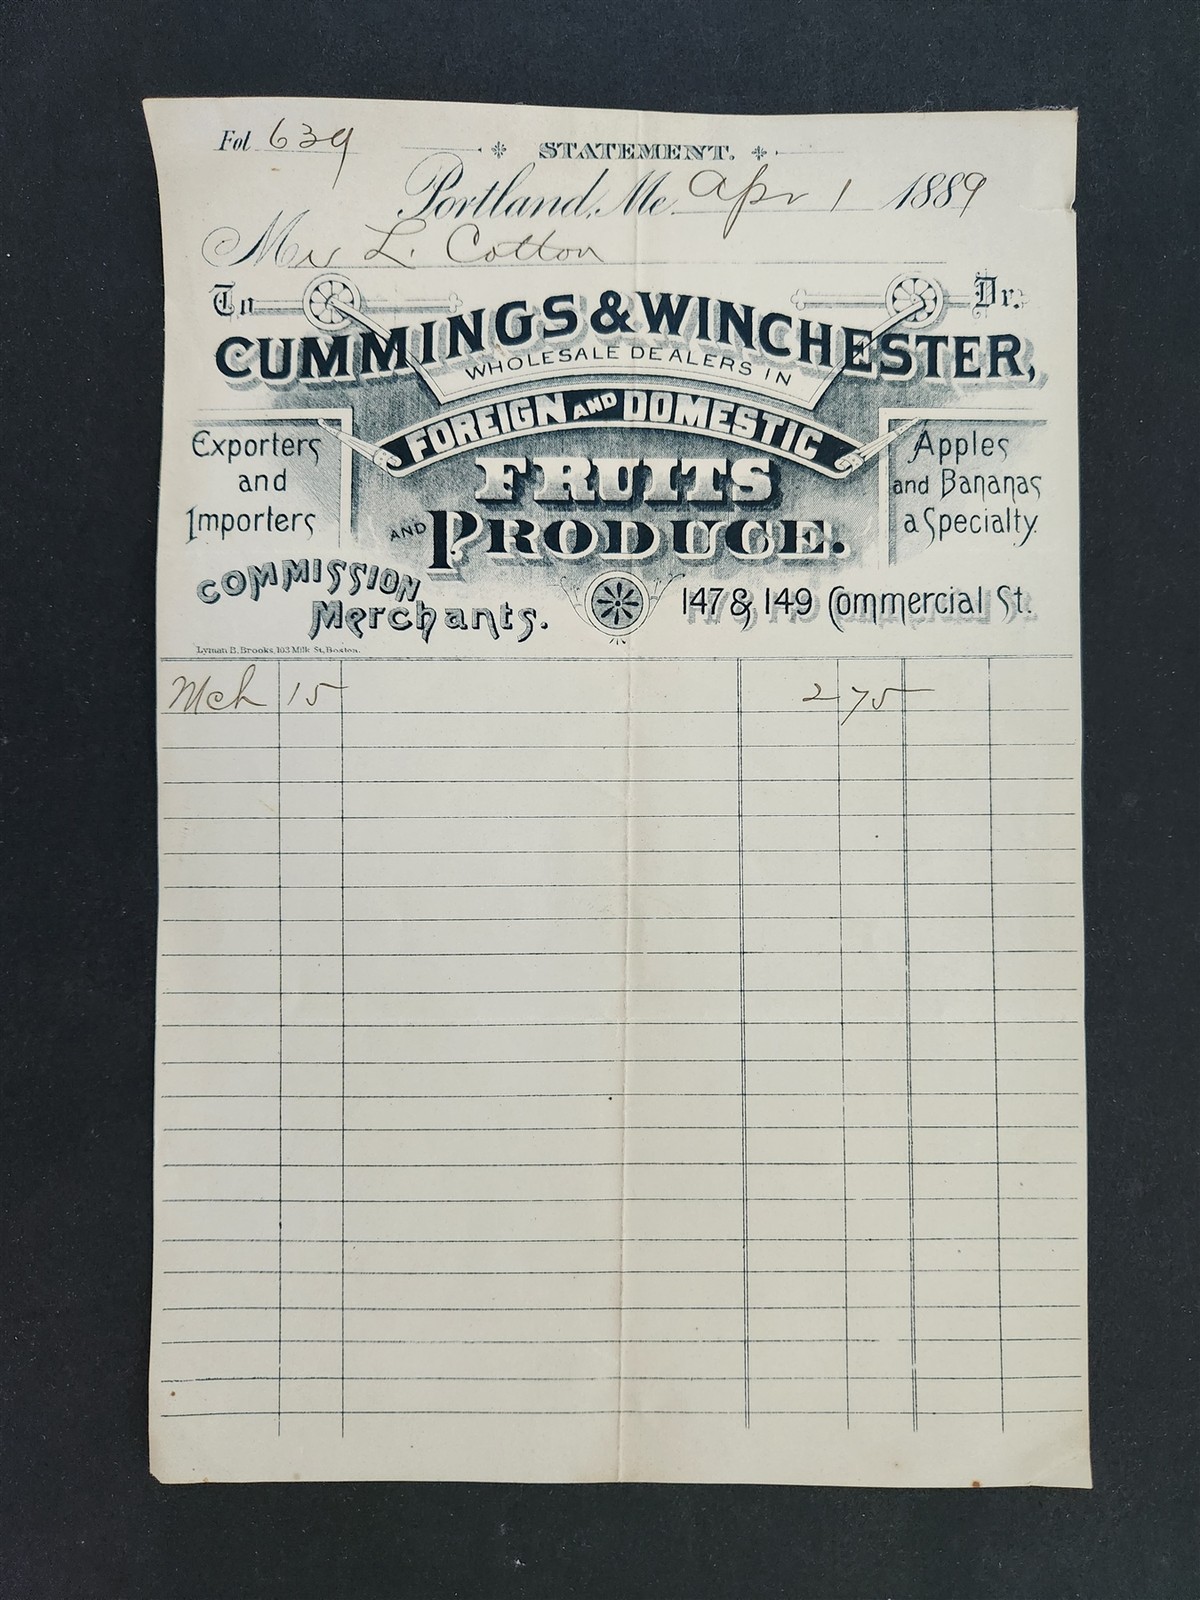 Fol 639
STATEMENT.
Portland, Me. Apr 1 1889
Mr L. Cotton
To Dr.
CUMMINGS & WINCHESTER,
WHOLESALE DEALERS IN
FOREIGN AND DOMESTIC
FRUITS
AND PRODUCE.
Exporters
and
Importers
Apples
and Bananas
a Specialty.
COMMISSION
Merchants.
147 & 149 Commercial St.
Lyman B. Brooks, 103 Milk St, Boston.
Mch 15 2 75